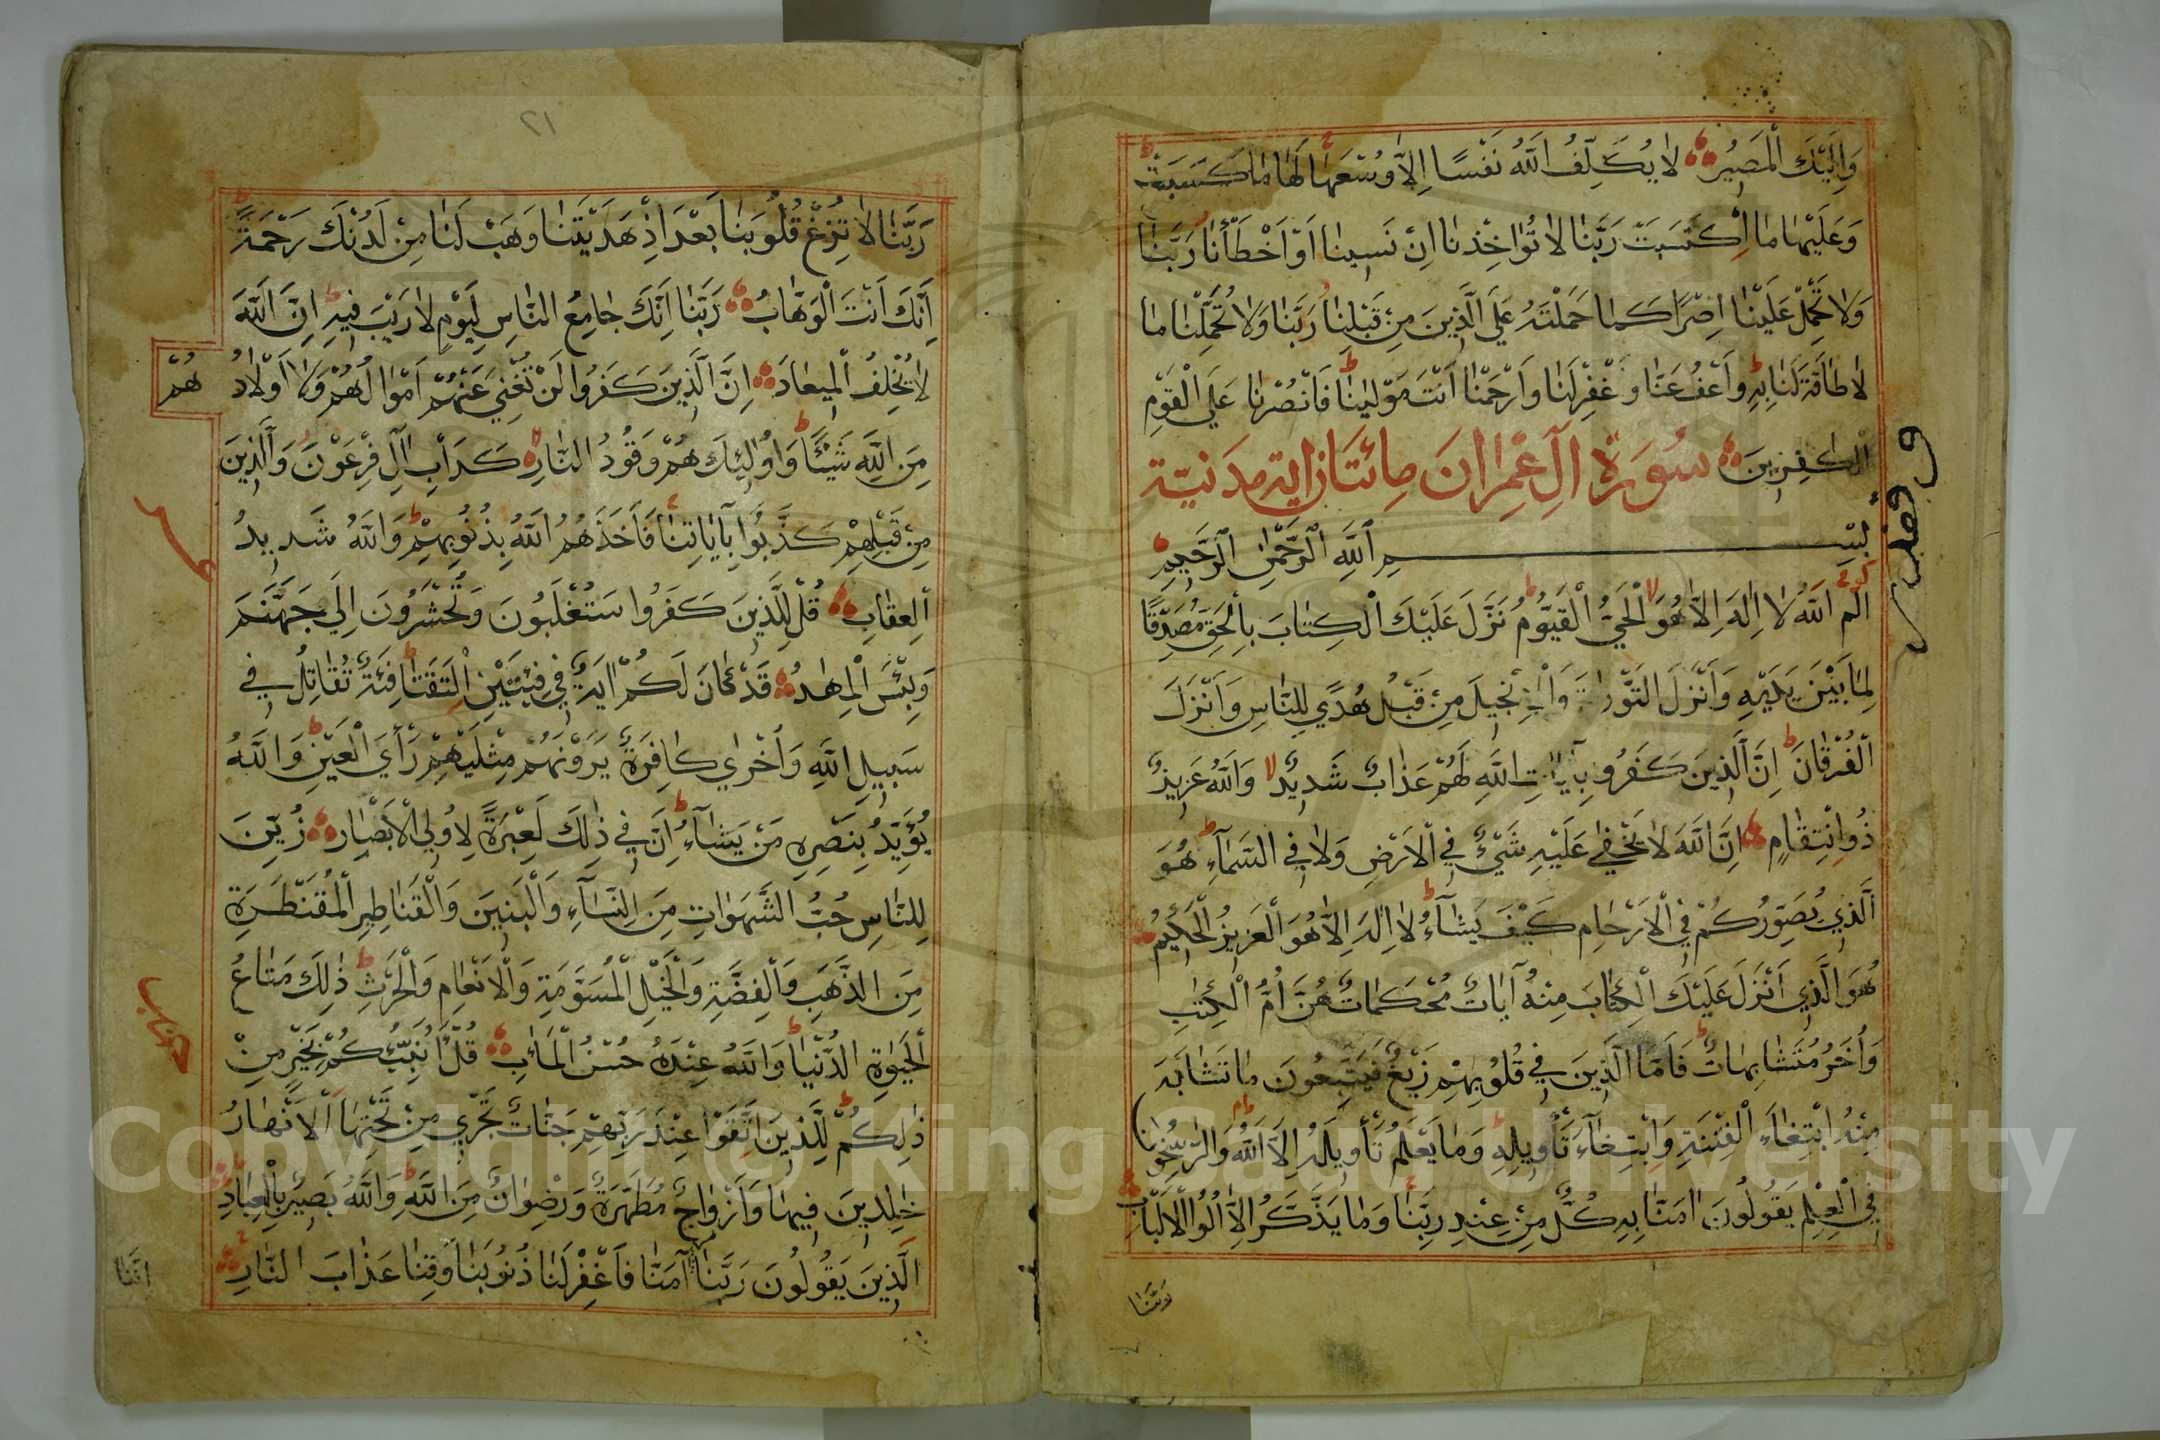 وَاِلَيْكَ الْمَصِيرُ لَا يُكَلِّفُ اللَّهُ نَفْسًا اِلَّا وُسْعَهَا لَهَا مَا كَسَبَتْ
وَعَلَيْهَا مَا اكْتَسَبَتْ رَبَّنَا لَا تُؤَاخِذْنَا اِنْ نَسِينَا اَوْ اَخْطَأْنَا رَبَّنَا
وَلَا تَحْمِلْ عَلَيْنَا اِصْرًا كَمَا حَمَلْتَهُ عَلَى الَّذِينَ مِنْ قَبْلِنَا رَبَّنَا وَلَا تُحَمِّلْنَا مَا
لَا طَاقَةَ لَنَا بِهِ وَاعْفُ عَنَّا وَاغْفِرْ لَنَا وَارْحَمْنَا اَنْتَ مَوْلٰينَا فَانْصُرْنَا عَلَى الْقَوْمِ
الْكٰفِرِينَ سُورَةُ آلِ عِمْرَانَ مِائَتَانِ اية مَدَنِيَّة
بِسْمِ اللَّهِ الرَّحْمٰنِ الرَّحِيمِ
الم اللَّهُ لَا اِلٰهَ اِلَّا هُوَ الْحَيُّ الْقَيُّومُ نَزَّلَ عَلَيْكَ الْكِتَابَ بِالْحَقِّ مُصَدِّقًا
لِمَا بَيْنَ يَدَيْهِ وَاَنْزَلَ التَّوْرٰاةَ وَالْاِنْجِيلَ مِنْ قَبْلُ هُدًى لِلنَّاسِ وَاَنْزَلَ
الْفُرْقَانَ اِنَّ الَّذِينَ كَفَرُوا بِآيَاتِ اللَّهِ لَهُمْ عَذَابٌ شَدِيدٌ وَاللَّهُ عَزِيزٌ
ذُو انْتِقَامٍ اِنَّ اللَّهَ لَا يَخْفٰى عَلَيْهِ شَيْءٌ فِي الْاَرْضِ وَلَا فِي السَّمَآءِ هُوَ
الَّذِي يُصَوِّرُكُمْ فِي الْاَرْحَامِ كَيْفَ يَشَآءُ لَا اِلٰهَ اِلَّا هُوَ الْعَزِيزُ الْحَكِيمُ
هُوَ الَّذِي اَنْزَلَ عَلَيْكَ الْكِتَابَ مِنْهُ آيَاتٌ مُحْكَمَاتٌ هُنَّ اُمُّ الْكِتٰبِ
وَاُخَرُ مُتَشَابِهَاتٌ فَاَمَّا الَّذِينَ فِي قُلُوبِهِمْ زَيْغٌ فَيَتَّبِعُونَ مَا تَشَابَهَ
مِنْهُ ابْتِغَآءَ الْفِتْنَةِ وَابْتِغَآءَ تَأْوِيلِهِ وَمَا يَعْلَمُ تَأْوِيلَهُ اِلَّا اللَّهُ وَالرّٰسِخُونَ
فِي الْعِلْمِ يَقُولُونَ اٰمَنَّا بِهِ كُلٌّ مِنْ عِنْدِ رَبِّنَا وَمَا يَذَّكَّرُ اِلَّا اُولُوا الْاَلْبَابِ
رَبَّنَا
٢١
رَبَّنَا لَا تُزِغْ قُلُوبَنَا بَعْدَ اِذْ هَدَيْتَنَا وَهَبْ لَنَا مِنْ لَدُنْكَ رَحْمَةً
اِنَّكَ اَنْتَ الْوَهَّابُ رَبَّنَا اِنَّكَ جَامِعُ النَّاسِ لِيَوْمٍ لَا رَيْبَ فِيهِ اِنَّ اللَّهَ
لَا يُخْلِفُ الْمِيعَادَ اِنَّ الَّذِينَ كَفَرُوا لَنْ تُغْنِيَ عَنْهُمْ اَمْوَالُهُمْ وَلَا اَوْلَادُهُمْ
مِنَ اللَّهِ شَيْئًا وَاُولٰئِكَ هُمْ وَقُودُ النَّارِ كَدَأْبِ اٰلِ فِرْعَوْنَ وَالَّذِينَ
مِنْ قَبْلِهِمْ كَذَّبُوا بِآيَاتِنَا فَاَخَذَهُمُ اللَّهُ بِذُنُوبِهِمْ وَاللَّهُ شَدِيدُ
الْعِقَابِ قُلْ لِلَّذِينَ كَفَرُوا سَتُغْلَبُونَ وَتُحْشَرُونَ اِلَى جَهَنَّمَ
وَبِئْسَ الْمِهَادُ قَدْ كَانَ لَكُمْ اٰيَةٌ فِي فِئَتَيْنِ الْتَقَتَا فِئَةٌ تُقَاتِلُ فِي
سَبِيلِ اللَّهِ وَاُخْرٰى كَافِرَةٌ يَرَوْنَهُمْ مِثْلَيْهِمْ رَأْيَ الْعَيْنِ وَاللَّهُ
يُؤَيِّدُ بِنَصْرِهِ مَنْ يَشَآءُ اِنَّ فِي ذٰلِكَ لَعِبْرَةً لِاُولِي الْاَبْصَارِ زُيِّنَ
لِلنَّاسِ حُبُّ الشَّهَوَاتِ مِنَ النِّسَآءِ وَالْبَنِينَ وَالْقَنَاطِيرِ الْمُقَنْطَرَةِ
مِنَ الذَّهَبِ وَالْفِضَّةِ وَالْخَيْلِ الْمُسَوَّمَةِ وَالْاَنْعَامِ وَالْحَرْثِ ذٰلِكَ مَتَاعُ
الْحَيٰوةِ الدُّنْيَا وَاللَّهُ عِنْدَهُ حُسْنُ الْمَاٰبِ قُلْ اَؤُنَبِّئُكُمْ بِخَيْرٍ مِنْ
ذٰلِكُمْ لِلَّذِينَ اتَّقَوْا عِنْدَ رَبِّهِمْ جَنَّاتٌ تَجْرِي مِنْ تَحْتِهَا الْاَنْهَارُ
خٰلِدِينَ فِيهَا وَاَزْوَاجٌ مُطَهَّرَةٌ وَرِضْوَانٌ مِنَ اللَّهِ وَاللَّهُ بَصِيرٌ بِالْعِبَادِ
الَّذِينَ يَقُولُونَ رَبَّنَا اِنَّنَا اٰمَنَّا فَاغْفِرْ لَنَا ذُنُوبَنَا وَقِنَا عَذَابَ النَّارِ
Copyright © King Saud University